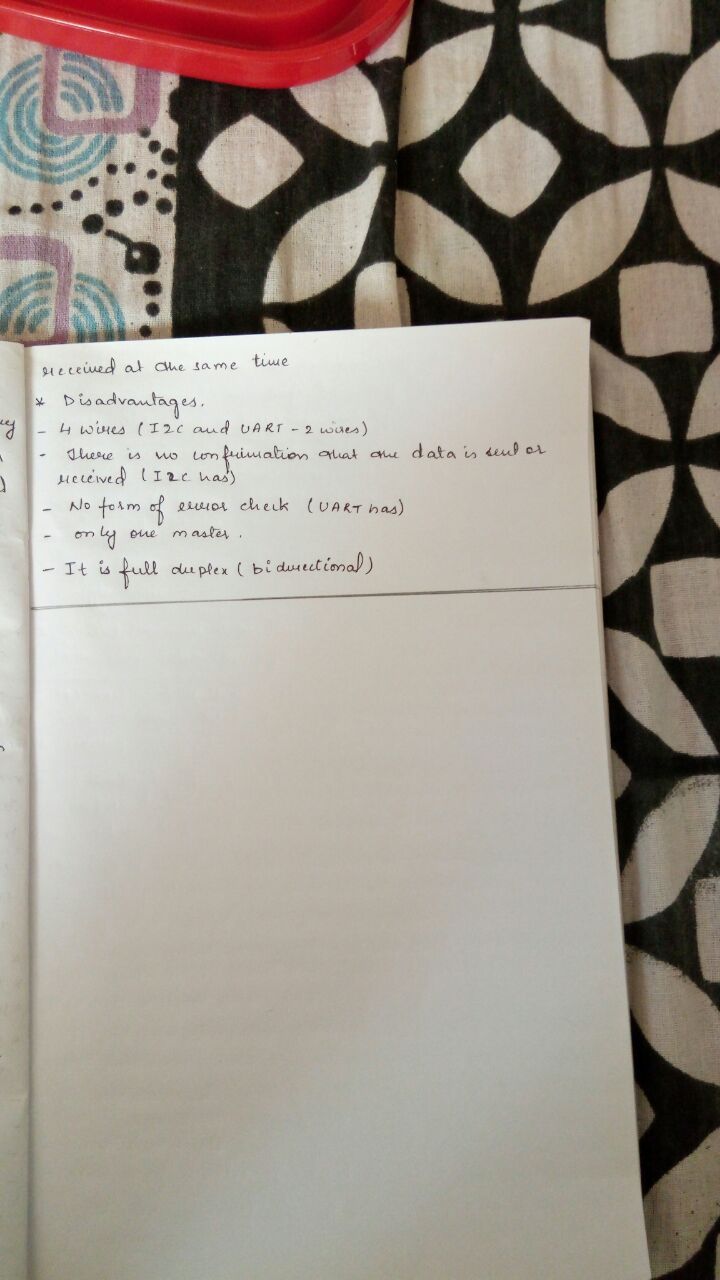 received at the same time
* Disadvantages.
- 4 wires (I2C and UART - 2 wires)
- There is no confirmation that the data is sent or
received (I2C has)
- No form of error check (UART has)
- only one master.
- It is full duplex (bidirectional)